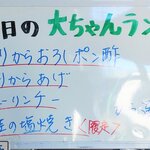 日の大ちゃんラン
りからおろしポン酢
りからあげ
ーリンケー
の塩焼き〈限定〉